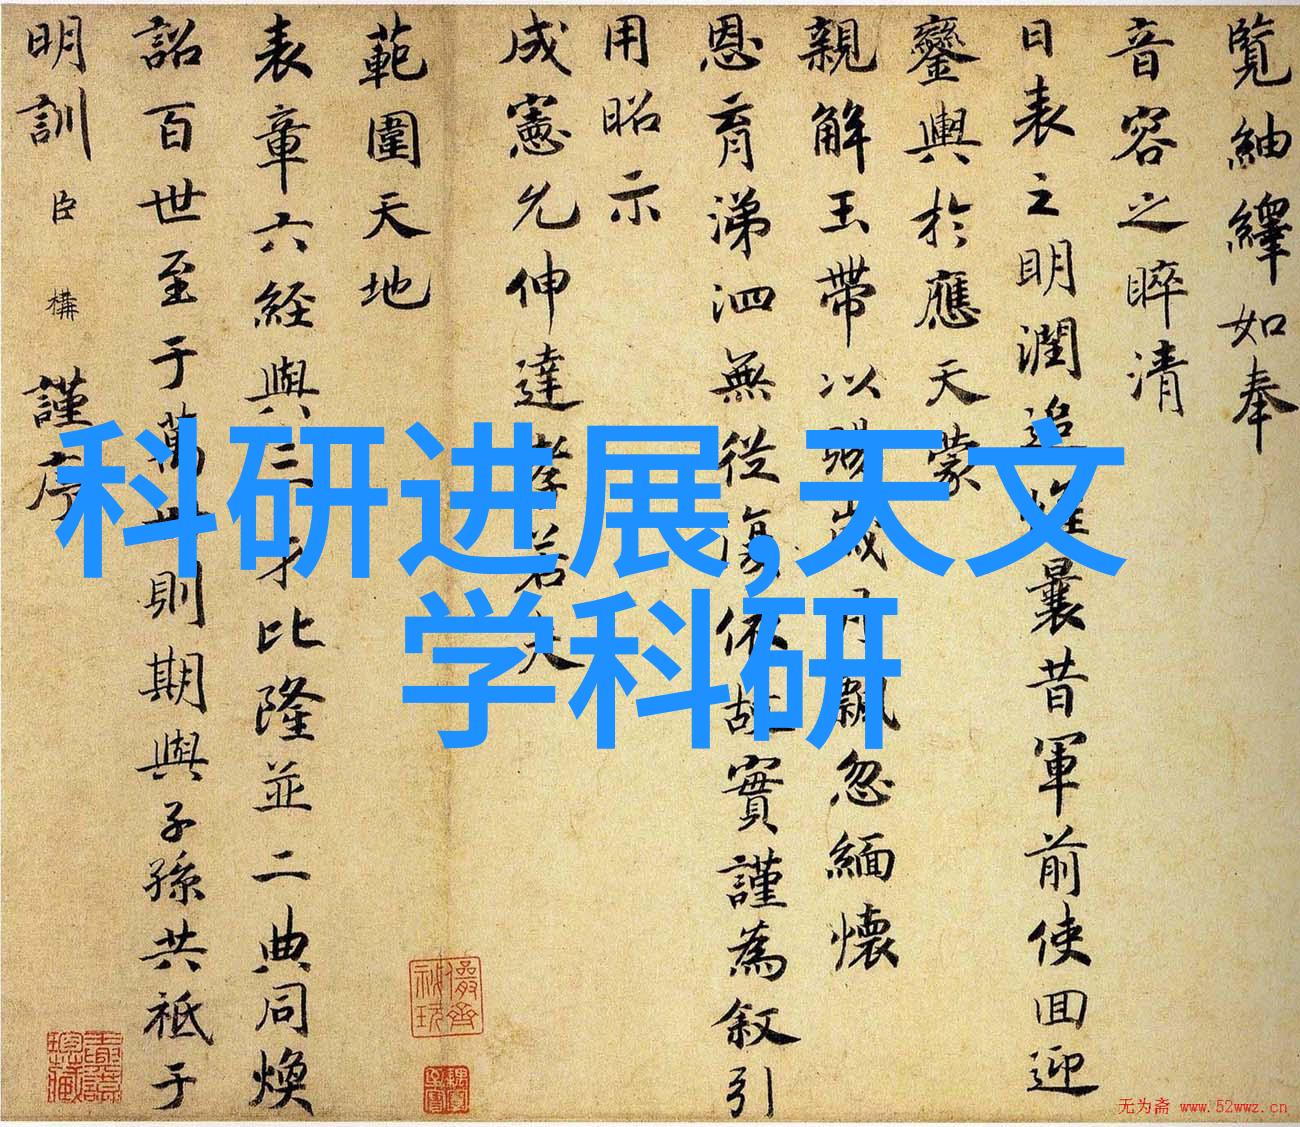 覽紬繹如奉
音容之睟清
日表之明潤追惟曩昔軍前使回迎
鑾輿於應天蒙
親解玉帶以賜歲月飄忽緬懷
恩育涕泗無從復依故實謹為叙引
用昭示
成憲允伸達孝若夫
範圍天地
表章六經與三才比隆並二典同煥
詔百世至于萬世則期與子孫共祗于
明訓臣構謹序
科研进展,天文
学科研
无为斋 www.52wwz.cn